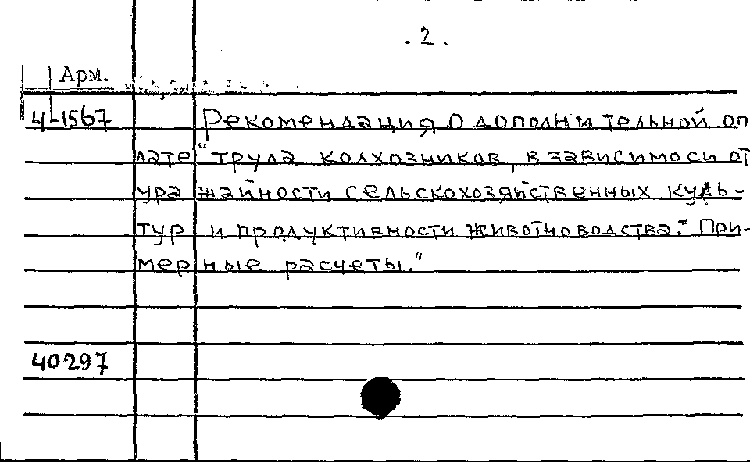 . 2 .
Арм.
4-1567 Рекомендация о дополнительной оп
лате "труда колхозников, в зависимоси от
уражайности сельскохозяйственных куль-
тур и продуктивности животноводства." При-
мерные расчеты."
40297